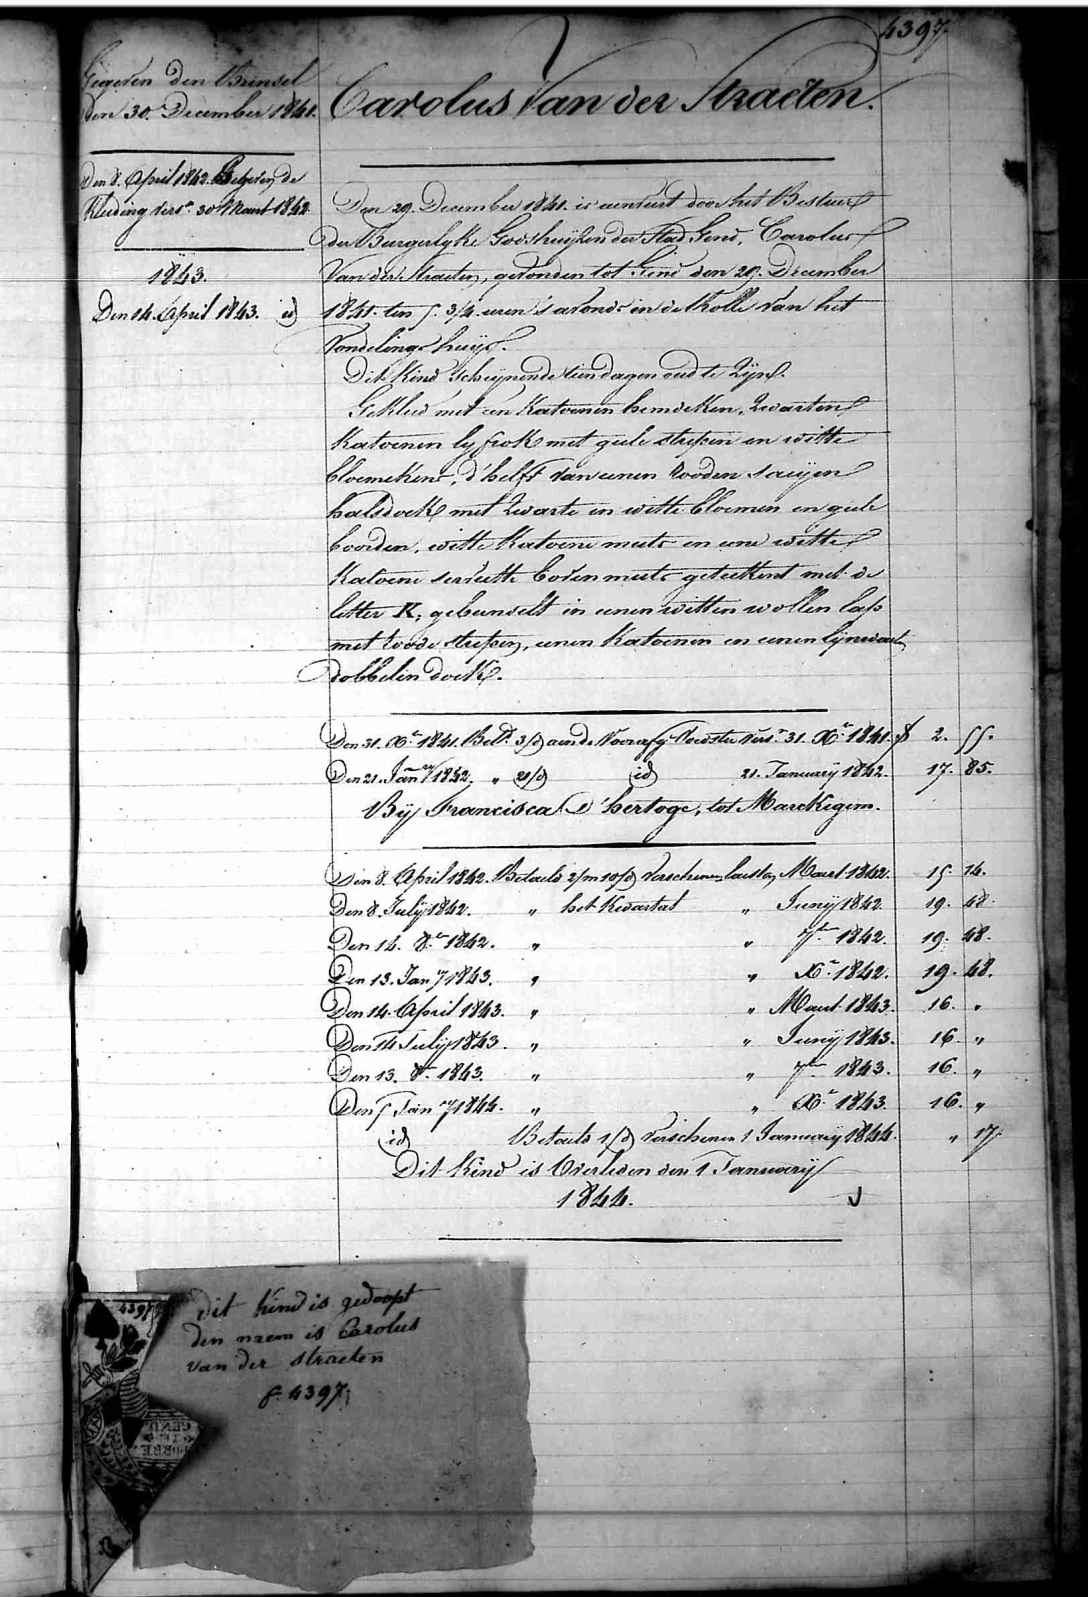 4397.
Gegeven den Bunsel
den 30. December 1841.
Den 8. April 1842. Gegeven de
Kleeding vers.n 30 Maart 1842.
1843.
Den 14. April 1843. id
Carolus Van der Straeten.
Den 29. December 1841. is aenveert door het Bestuer
der Burgerlyke Godshuijsen der Stad Gend, Carolus
Van der Straeten, gevonden tot Gend den 29. December
1841. ten 5. 3/4. uren 's avonds in de Rolle van het
Vondelinge huijs.
Dit Kind schijnende tien dagen oud te Zijn.
Gekleed met een Katoenen hemdeken, Zwarten
Katoenen lyfrok met geele strepen en witte
bloemekens, d'helft van eenen rooden saeijen
halsdoek met Zwarte en witte bloemen en geele
boorden, witte Katoene muts en eene witte
Katoene serviette boven muts geteekent met de
letter K, gebunselt in eenen witten wollen lap
met roode strepen, eenen Katoenen en eenen lijnwaet
dobbelen doek.
Den 31. Xr. 1841. Bett. 3/d aen de Voorafg. Voedster vers.n 31. Xr. 1841. f 2. 55.
Den 21. Janry 1842. " 21/d id 21. January 1842. 17. 85.
Bij Francisca D'hertoge, tot Marckegem.
Den 8. April 1842. Betaelt 2/m 10/d Verschenen laesten Maert 1842. 15. 14.
Den 8. July 1842. " het Kwartael " Junij 1842. 19. 48.
Den 14. 8.r 1842. " " 7.r 1842. 19. 48.
Den 13. Jany 1843. " " Xr. 1842. 19. 48.
Den 14. April 1843. " " Maert 1843. 16. "
Den 14 July 1843. " " Junij 1843. 16. "
Den 13. 8r 1843. " " 7r 1843. 16. "
Den 5 Janry 1844. " " Xr. 1843. 16. "
id Betaelt 1/d Verschenen 1 January 1844. " 17.
Dit Kind is Overleden den 1 January
1844.
4397
dit kind is gedoopt
den naem is Carolus
van der straeten
f. 4397.
GEND